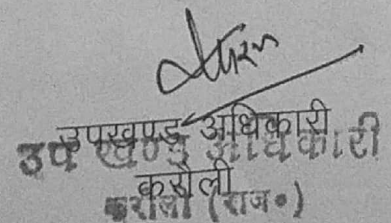 उपखण्ड अधिकारी
उप खण्ड अधिकारी
करौली
करौली (राज०)